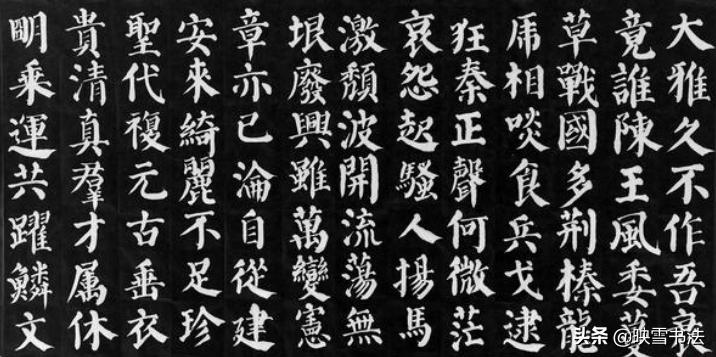 大雅久不作吾衰
竟誰陳王風委蔓
草戰國多荆榛龍
虎相啖食兵戈逮
狂秦正聲何微茫
哀怨起騷人揚馬
激頽波開流蕩無
垠廢興雖萬變憲
章亦已淪自從建
安來綺麗不足珍
聖代複元古垂衣
貴清真羣才属休
朙乘運共躍鱗文
头条 @映雪书法